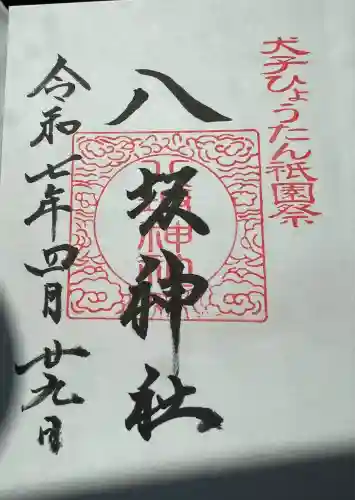 犬子ひょうたん祇園祭
八坂神社
令和七年四月廿九日